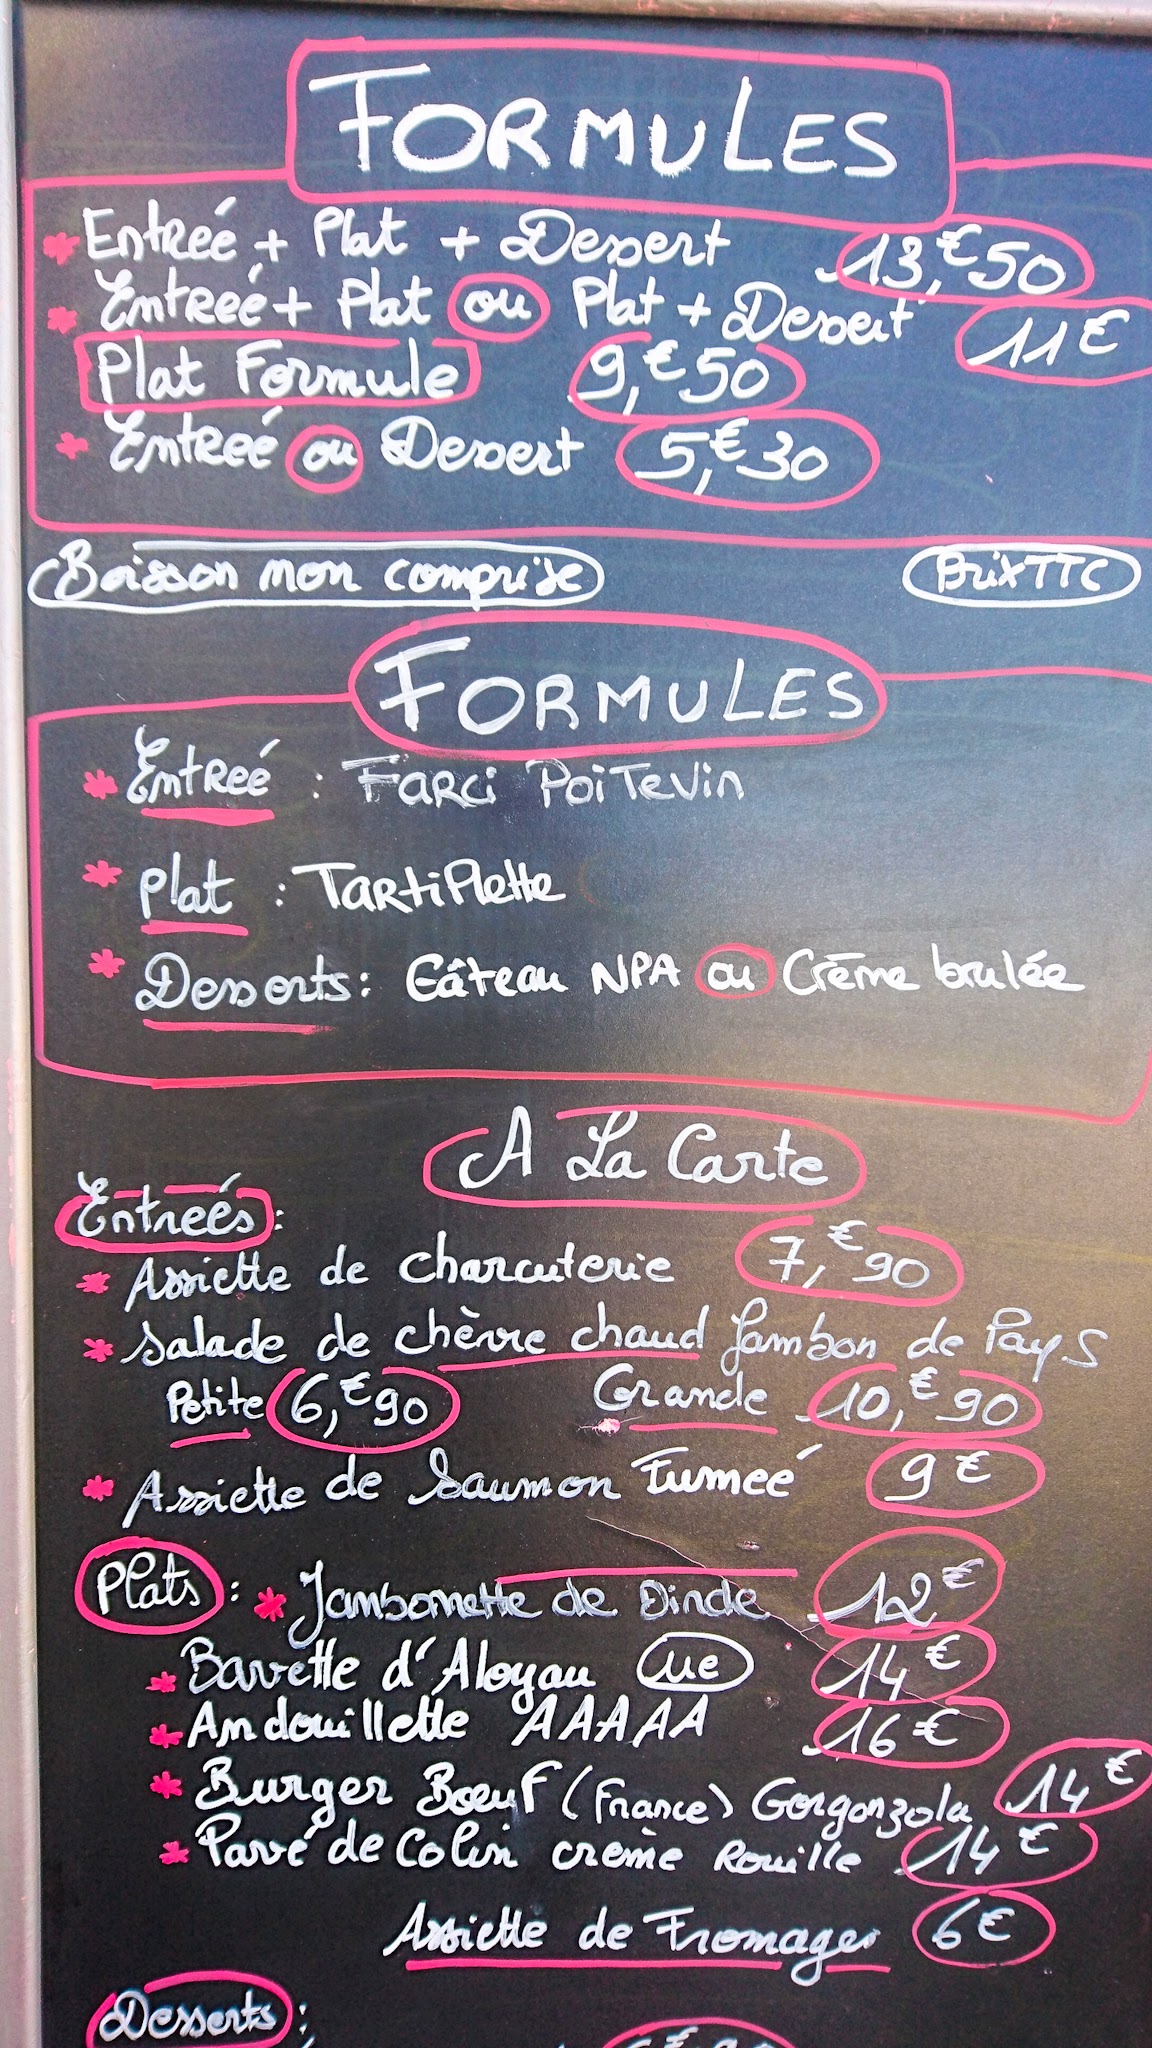 FORMULES
Entreé + Plat + Dessert 13,€50
Entreé + Plat ou Plat + Dessert 11€
Plat Formule 9,€50
Entreé ou Dessert 5,€30
Boisson non comprise Prix TTC
FORMULES
Entreé : Farci Poitevin
Plat : Tartiflette
Desserts : Gâteau NPA ou Crème brulée
A La Carte
Entreés :
Assiette de charcuterie 7,€90
Salade de chèvre chaud Jambon de Pays
Petite 6,€90 Grande 10,€90
Assiette de Saumon Fumeé 9€
Plats : Jambonnette de Dinde 12€
Bavette d'Aloyau UE 14€
Andouillette AAAAA 16€
Burger Bœuf (France) Gorgonzola 14€
Pavé de Colin crème Rouille 14€
Assiette de Fromages 6€
Desserts :